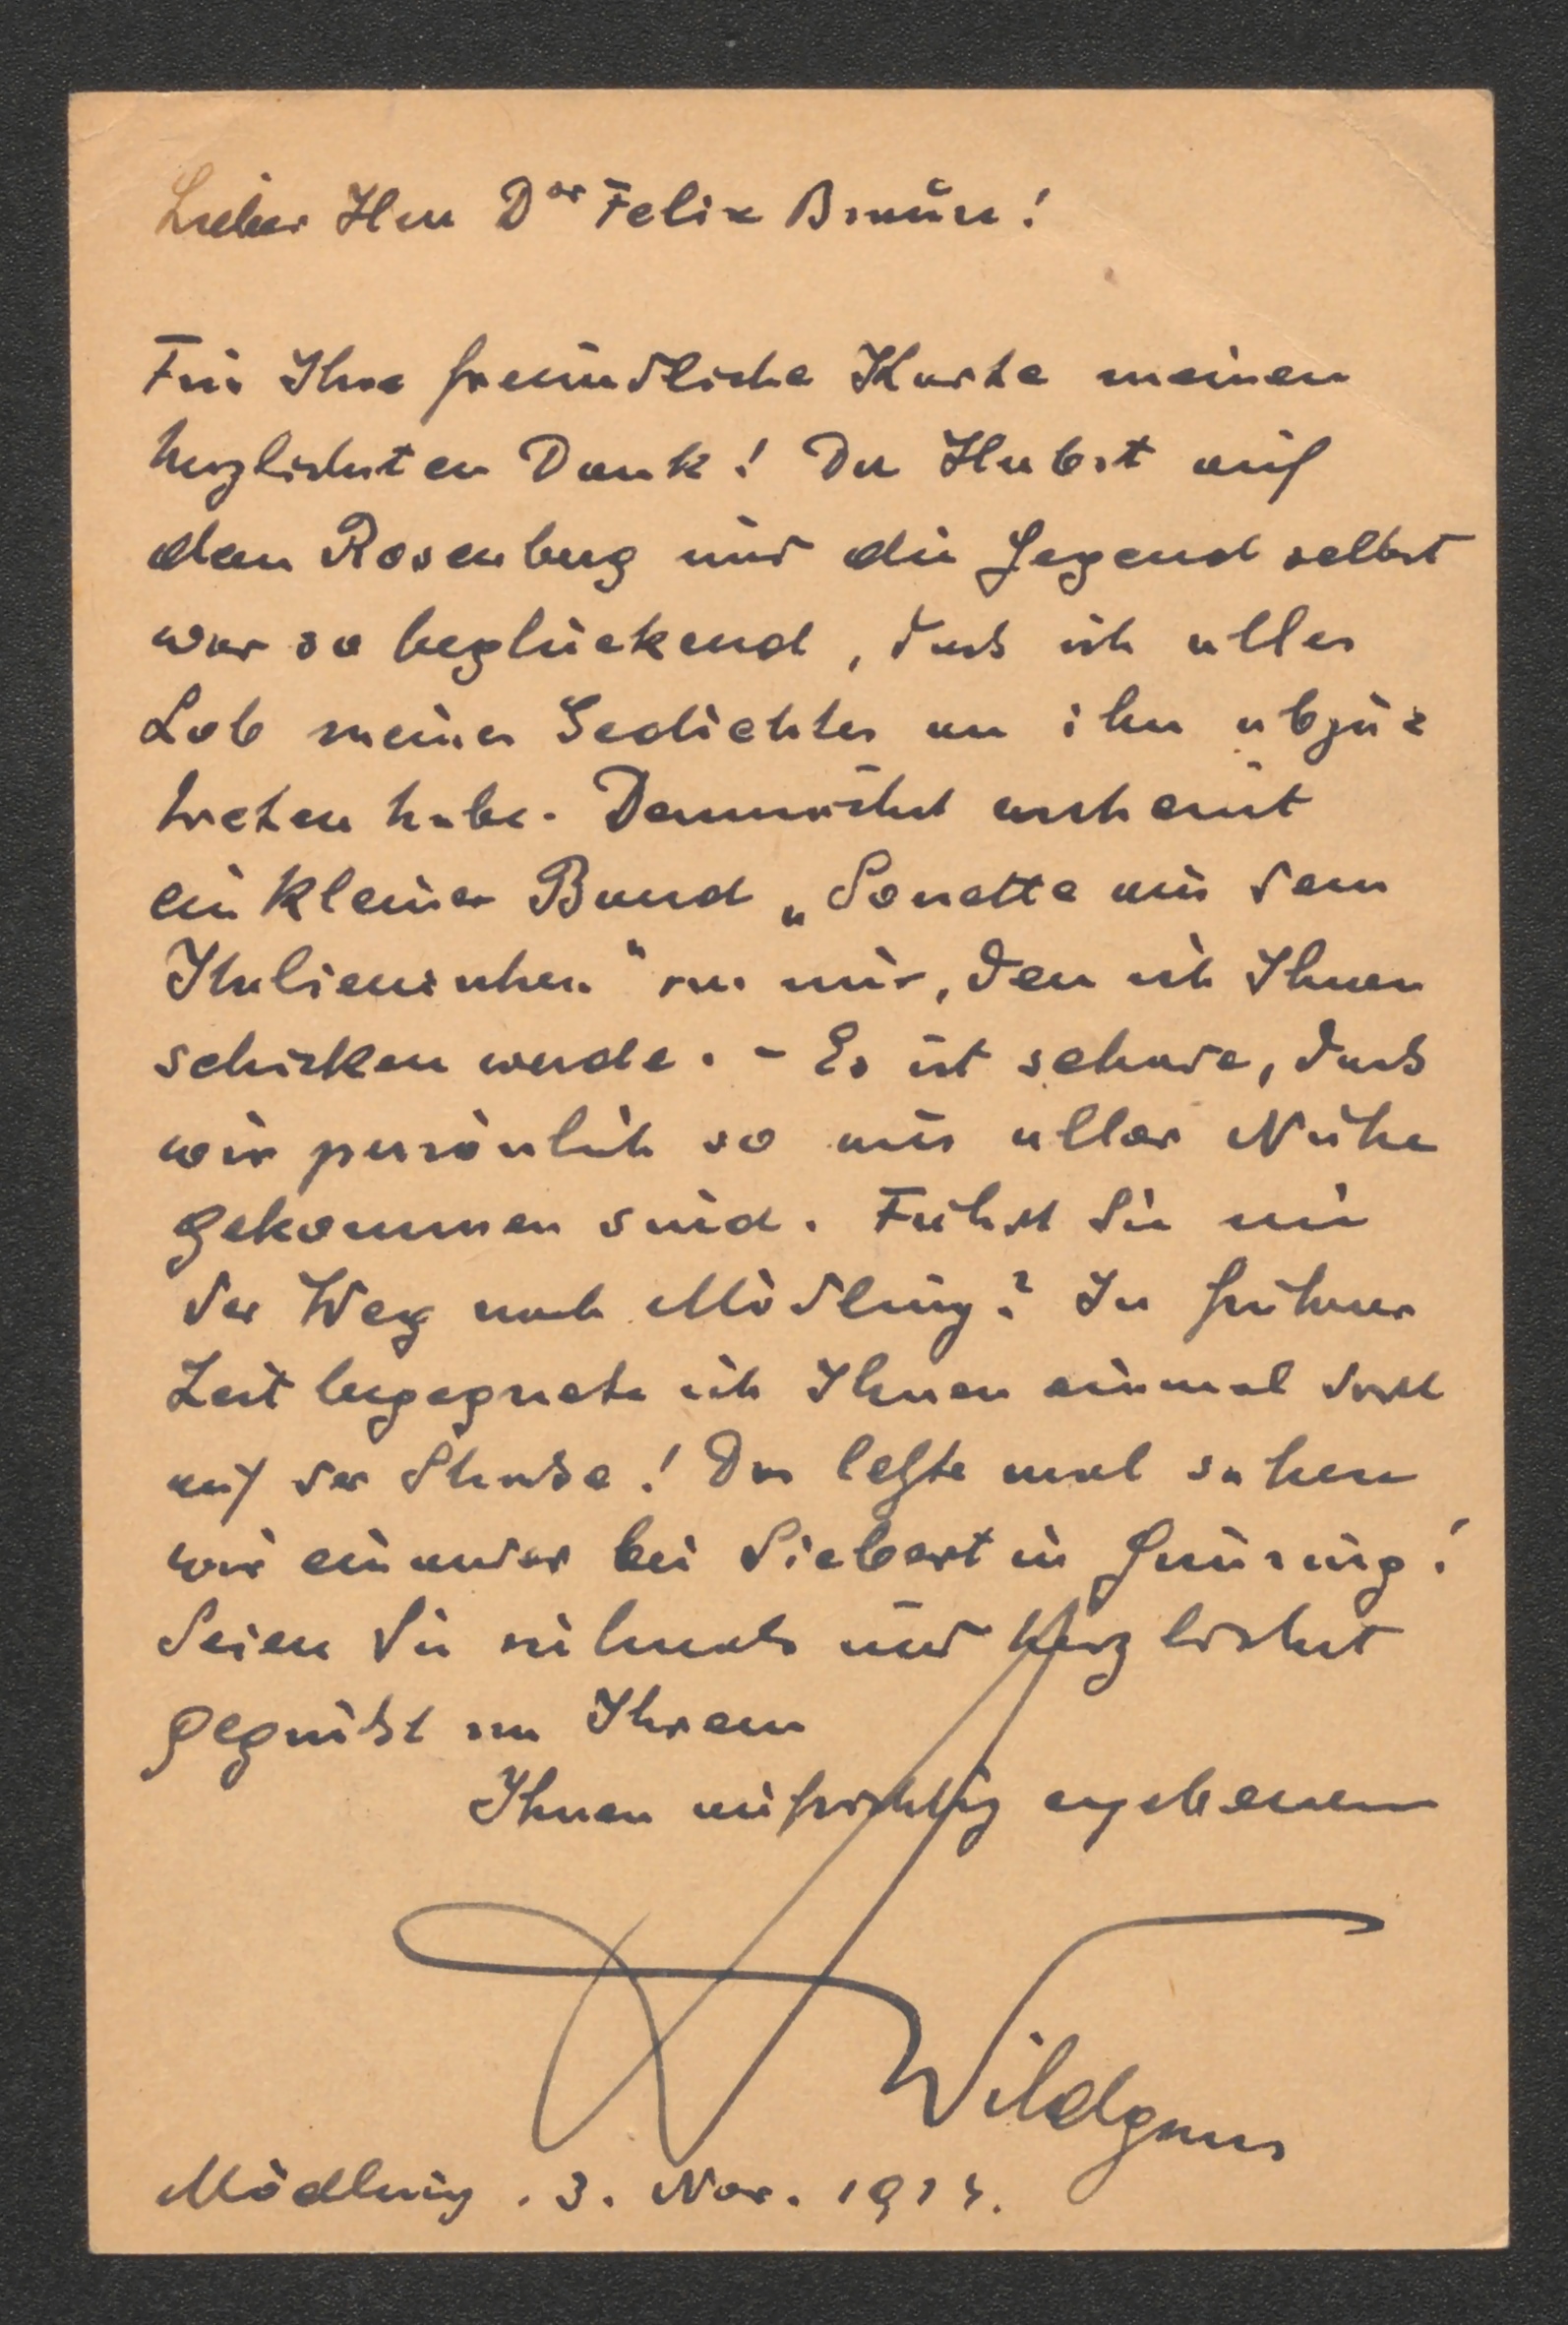 Lieber Herr Dor Felix Braun!
Für Ihre freundliche Karte meinen
herzlichsten Dank! Der Herbst auf
dem Rosenberg und die Gegend selbst
war so beglückend, dass ich alles
Lob meines Gedichtes an ihn abzu=
treten habe. Demnächst erscheint
ein kleiner Band „Sonette aus dem
Italienischen" von mir, den ich Ihnen
schicken werde. - Es ist schade, dass
wir persönlich so aus aller Nähe
gekommen sind. Führt Sie nie
der Weg nach Mödling? In früherer
Zeit begegnete ich Ihnen einmal dort
auf der Strasse! Das letzte mal sahen
wir einander bei Siebert in
Seien Sie vielmals und herzlichst
gegrüsst von Ihrem
Ihnen aufrichtig ergebenen
Wildgans
Mödling. 3. Nov.